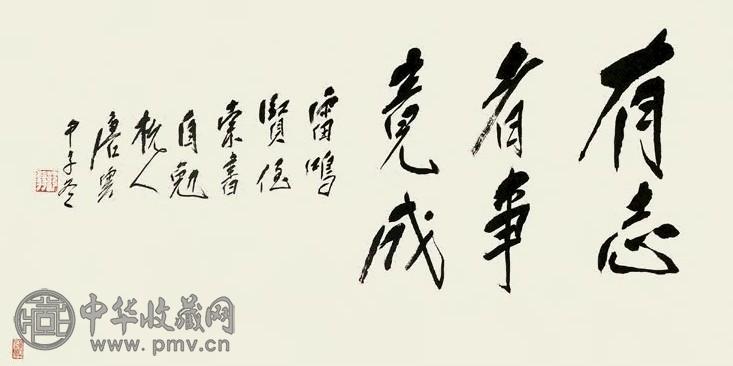 有志
者事
竟成
雷
賢侄
索書
自勉
杭人
唐雲
甲子冬
中华收藏网
www.pmv.cn